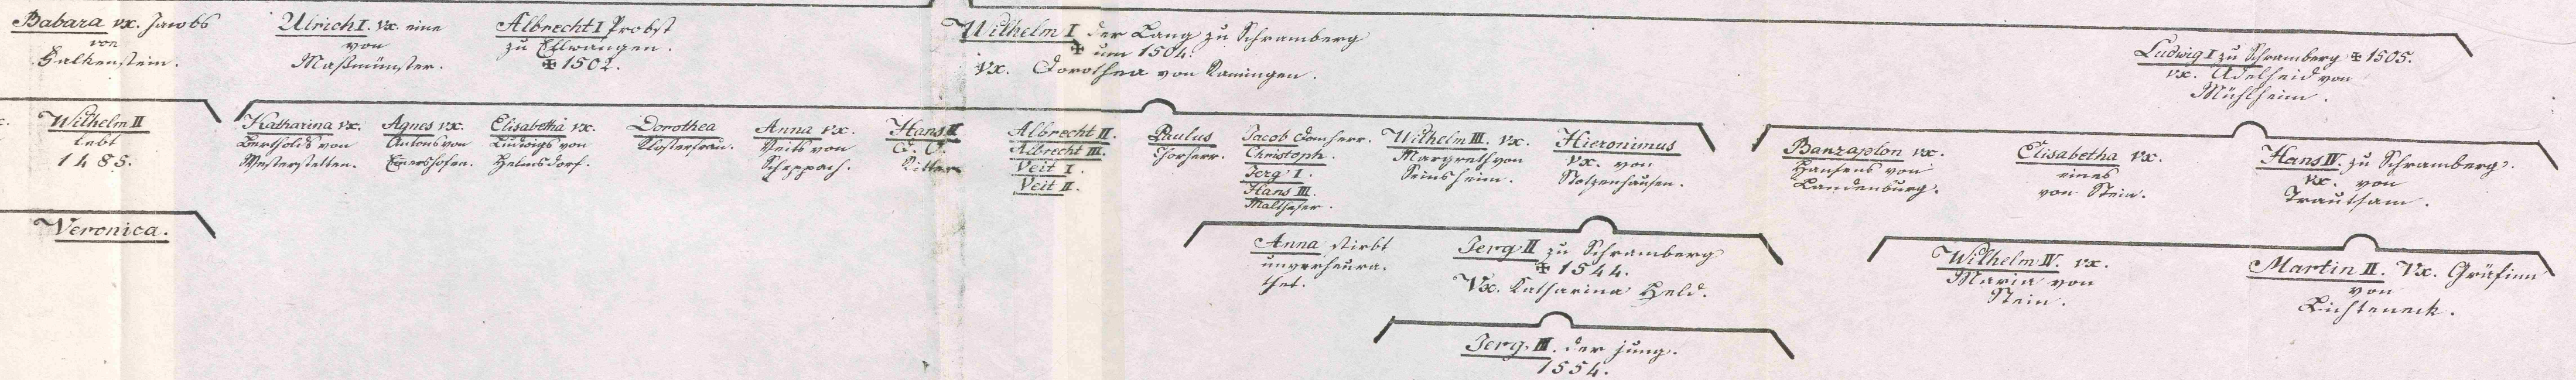 Babara vx. Jacobs
von
Falkenstein.
Ulrich I. vx. eine
von
Maßmünster.
Albrecht I Probst
zu Ellwangen.
✠ 1502.
Wilhelm I der Lang zu Schramberg
✠ um 1504.
vx. Dorothea von
Ludwig I zu Schramberg ✠ 1505.
vx. Adelheid von
Mühlheim.
Wilhelm II
lebt
1485.
Katharina vx.
Bertholds von
Westerstetten.
Agnes vx.
Antons von
Emershofen.
Elisabetha vx.
Ludwigs von
Helmsdorf.
Dorothea
Klosterfrau.
Anna vx.
Veits von
Scheppach.
Hans II
D. O.
Ritter
Albrecht II.
Albrecht III.
Veit I.
Veit II.
Paulus
Chorherr.
Jacob Domherr.
Christoph.
Jerg I.
Hans III.
Maltheser.
Wilhelm III. vx.
Margreth von
Seinsheim.
Hieronimus
vx. von
Stotzenhausen.
Banzaplon vx.
Hansens von
Landenburg.
Elisabetha vx.
eines
von Stein.
Hans IV. zu Schramberg.
vx. von
Trautsam.
Veronica.
Anna stirbt
unverheura-
thet.
Jerg II zu Schramberg
✠ 1544.
Vx. Katharina Held.
Wilhelm IV. vx.
Maria von
Stein.
Martin II. Vx. Gräfinn
von
Lichteneck.
Jerg III. der jung.
1554.